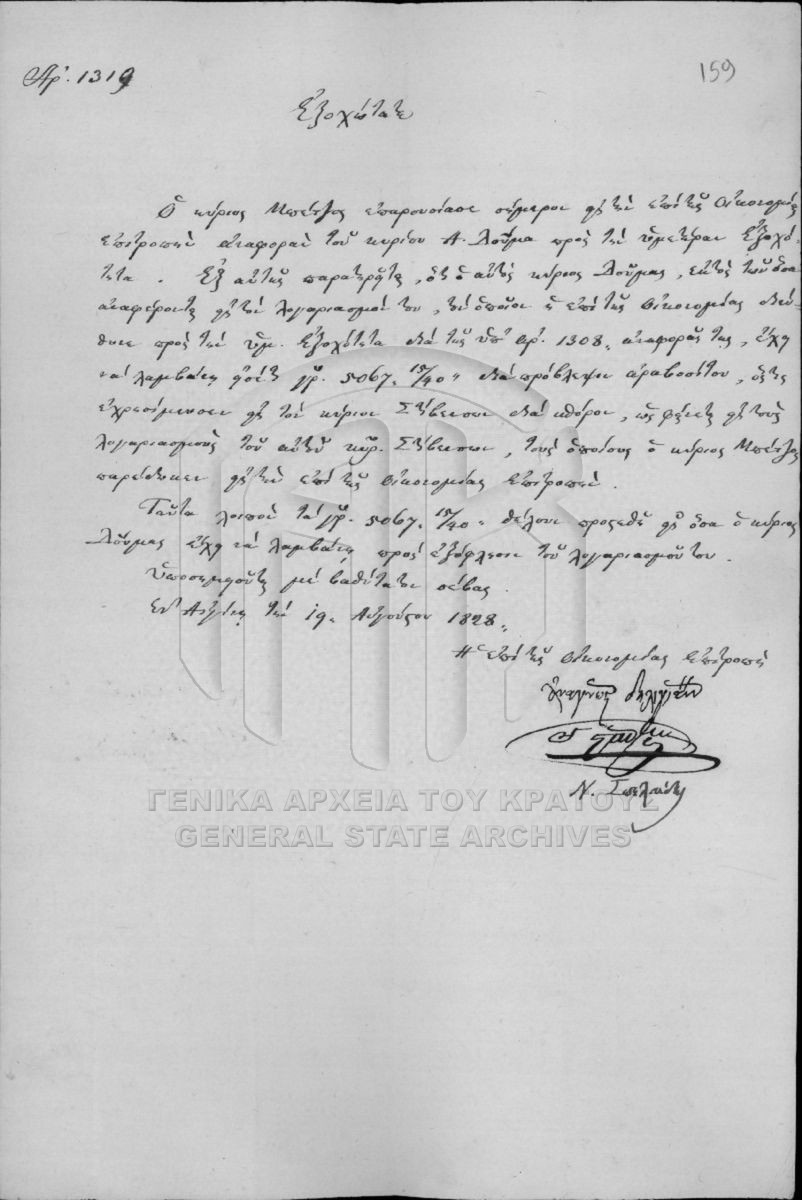 Ἀρ. 1319
159
Ἐξοχώτατε
Ὁ κύριος Μπέτζος ἐπαρουσίασε σήμερον εἰς τὴν ἐπὶ τῆς Οἰκονομίας
ἐπιτροπὴν ἀναφορὰν τοῦ κυρίου Α. Λούμα πρὸς τὴν ὑμετέραν Ἐξοχό-
τητα. Ἐξ αὐτῆς παρατηρεῖτε, ὅτι ὁ αὐτὸς κύριος Λούμας, ἐκτὸς τῶν ὅσα
ἀναφέρονται εἰς τὸν λογαριασμόν του, τὸν ὁποῖον ἡ ἐπὶ τῆς Οἰκονομίας διεύ-
θυνε πρὸς τὴν ὑμ. Ἐξοχότητα διὰ τῆς ὑπ' ἀρ. 1308, ἀναφορᾶς της, ἔχει
νὰ λαμβάνῃ γρ. 5067. 15/40 διὰ πρόβλεψιν ἀραβοσίτου, ὅστις
ἐχρησίμευσεν εἰς τὸν κύριον Στήβενσον διὰ σπόρον, ὡς φαίνεται εἰς τοὺς
λογαριασμοὺς τοῦ αὐτοῦ κυρ. Στήβενσον, τοὺς ὁποίους ὁ κύριος Μπέτζος
παρέδωκεν εἰς τὴν ἐπὶ τῆς Οἰκονομίας Ἐπιτροπήν.
Ταῦτα λοιπὸν τὰ γρ. 5067. 15/40 θέλουν προστεθῆ εἰς ὅσα ὁ κύριος
Λούμας ἔχει νὰ λαμβάνῃ πρὸς ἐξόφλησιν τοῦ λογαριασμοῦ του.
Ὑποσημειούμεθα μὲ βαθύτατον σέβας.
Ἐν Αἰγίνῃ τὴν 19 Αὐγούστου 1828
Ἡ ἐπὶ τῆς Οἰκονομίας Ἐπιτροπὴ
Ν. Σπηλιάδης
ΓΕΝΙΚΑ ΑΡΧΕΙΑ ΤΟΥ ΚΡΑΤΟΥΣ
GENERAL STATE ARCHIVES